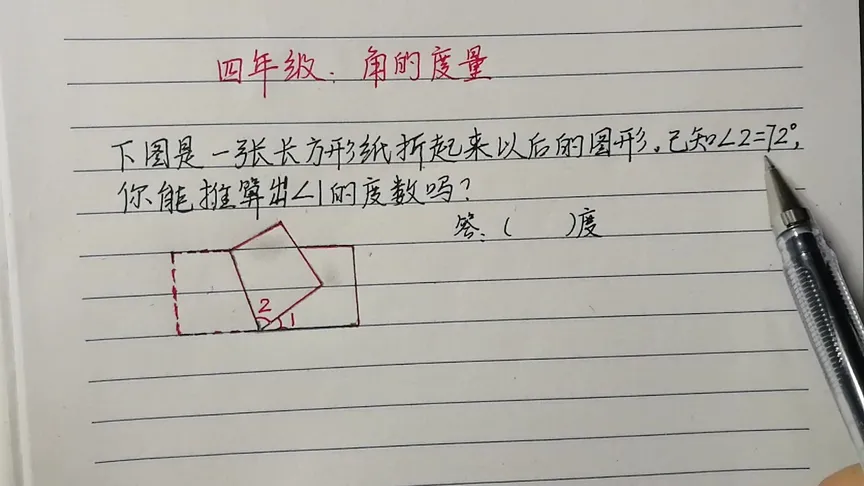 四年级：角的度量
下图是一张长方形纸折起来以后的图形。已知∠2=72°,
你能推算出∠1的度数吗?
答：(    )度
2
1